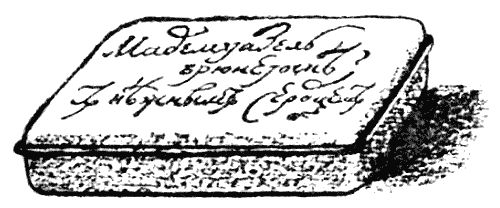 Мадемуазель
брюнеточкѣ
Съ нѣжнымъ Сердцемъ